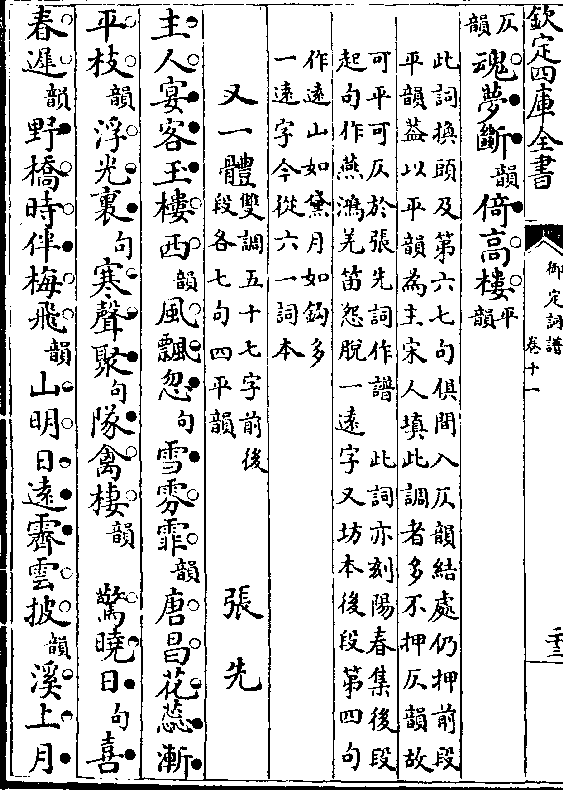 欽定四庫全書
御定詞譜
卷十一
二十三
仄韻魂夢斷韻倚高樓平韻
此詞換頭及第六七句俱間入仄韻結處仍押前段
平韻蓋以平韻為主宋人填此調者多不押仄韻故
可平可仄於張先詞作譜　此詞亦刻陽春集後段
起句作燕鴻羌笛怨脫一遠字又坊本後段第四句
作遠山如黛月如鈎多
一遠字今從六一詞本
又一體雙調五十七字前後段各七句四平韻　張先
主人宴客玉樓西韻風飄忽句雪雰霏韻唐昌花蕊漸
平枝韻浮光裏句寒聲聚句隊禽棲韻　驚曉日句喜
春遲韻野橋時伴梅飛韻山明日遠霽雲披韻溪上月